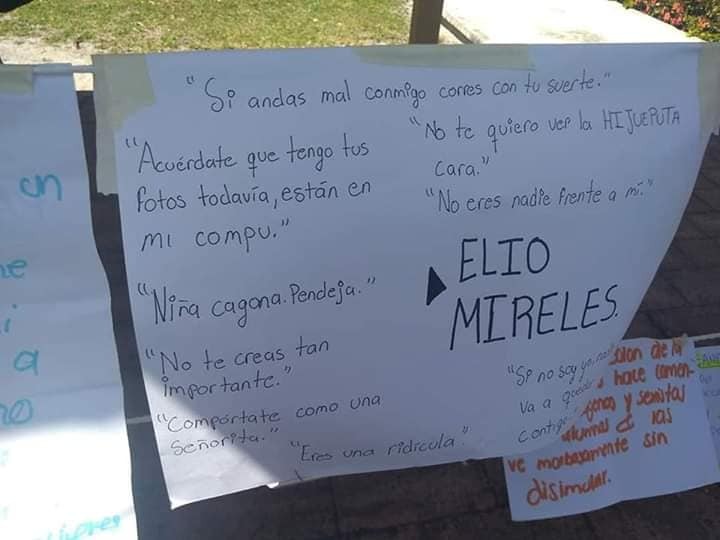 "Si andas mal conmigo corres con tu suerte."
"Acuérdate que tengo tus
fotos todavía, están en
mi compu."
"Niña cagona. Pendeja."
"No te creas tan
importante."
"Compórtate como una
Señorita."
"Eres una ridícula."
"No te quiero ver la HIJUEPUTA
cara."
"No eres nadie frente a mí."
ELIO
MIRELES.
"Si no soy yo,
va a
contigo
de la
hace comen-
y sexistas
las
ve morbosamente sin
disimular.
en
a